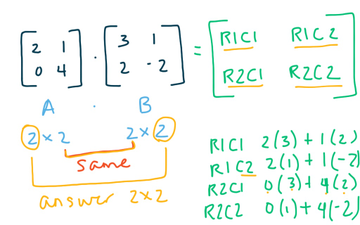 [2 1] · [3 1] = [R1C1 R1C2]
[0 4] [2 -2] [R2C1 R2C2]
A · B
2 × 2 2 × 2
same
answer 2×2
R1C1 2(3) + 1(2)
R1C2 2(1) + 1(-2)
R2C1 0(3) + 4(2)
R2C2 0(1) + 4(-2)